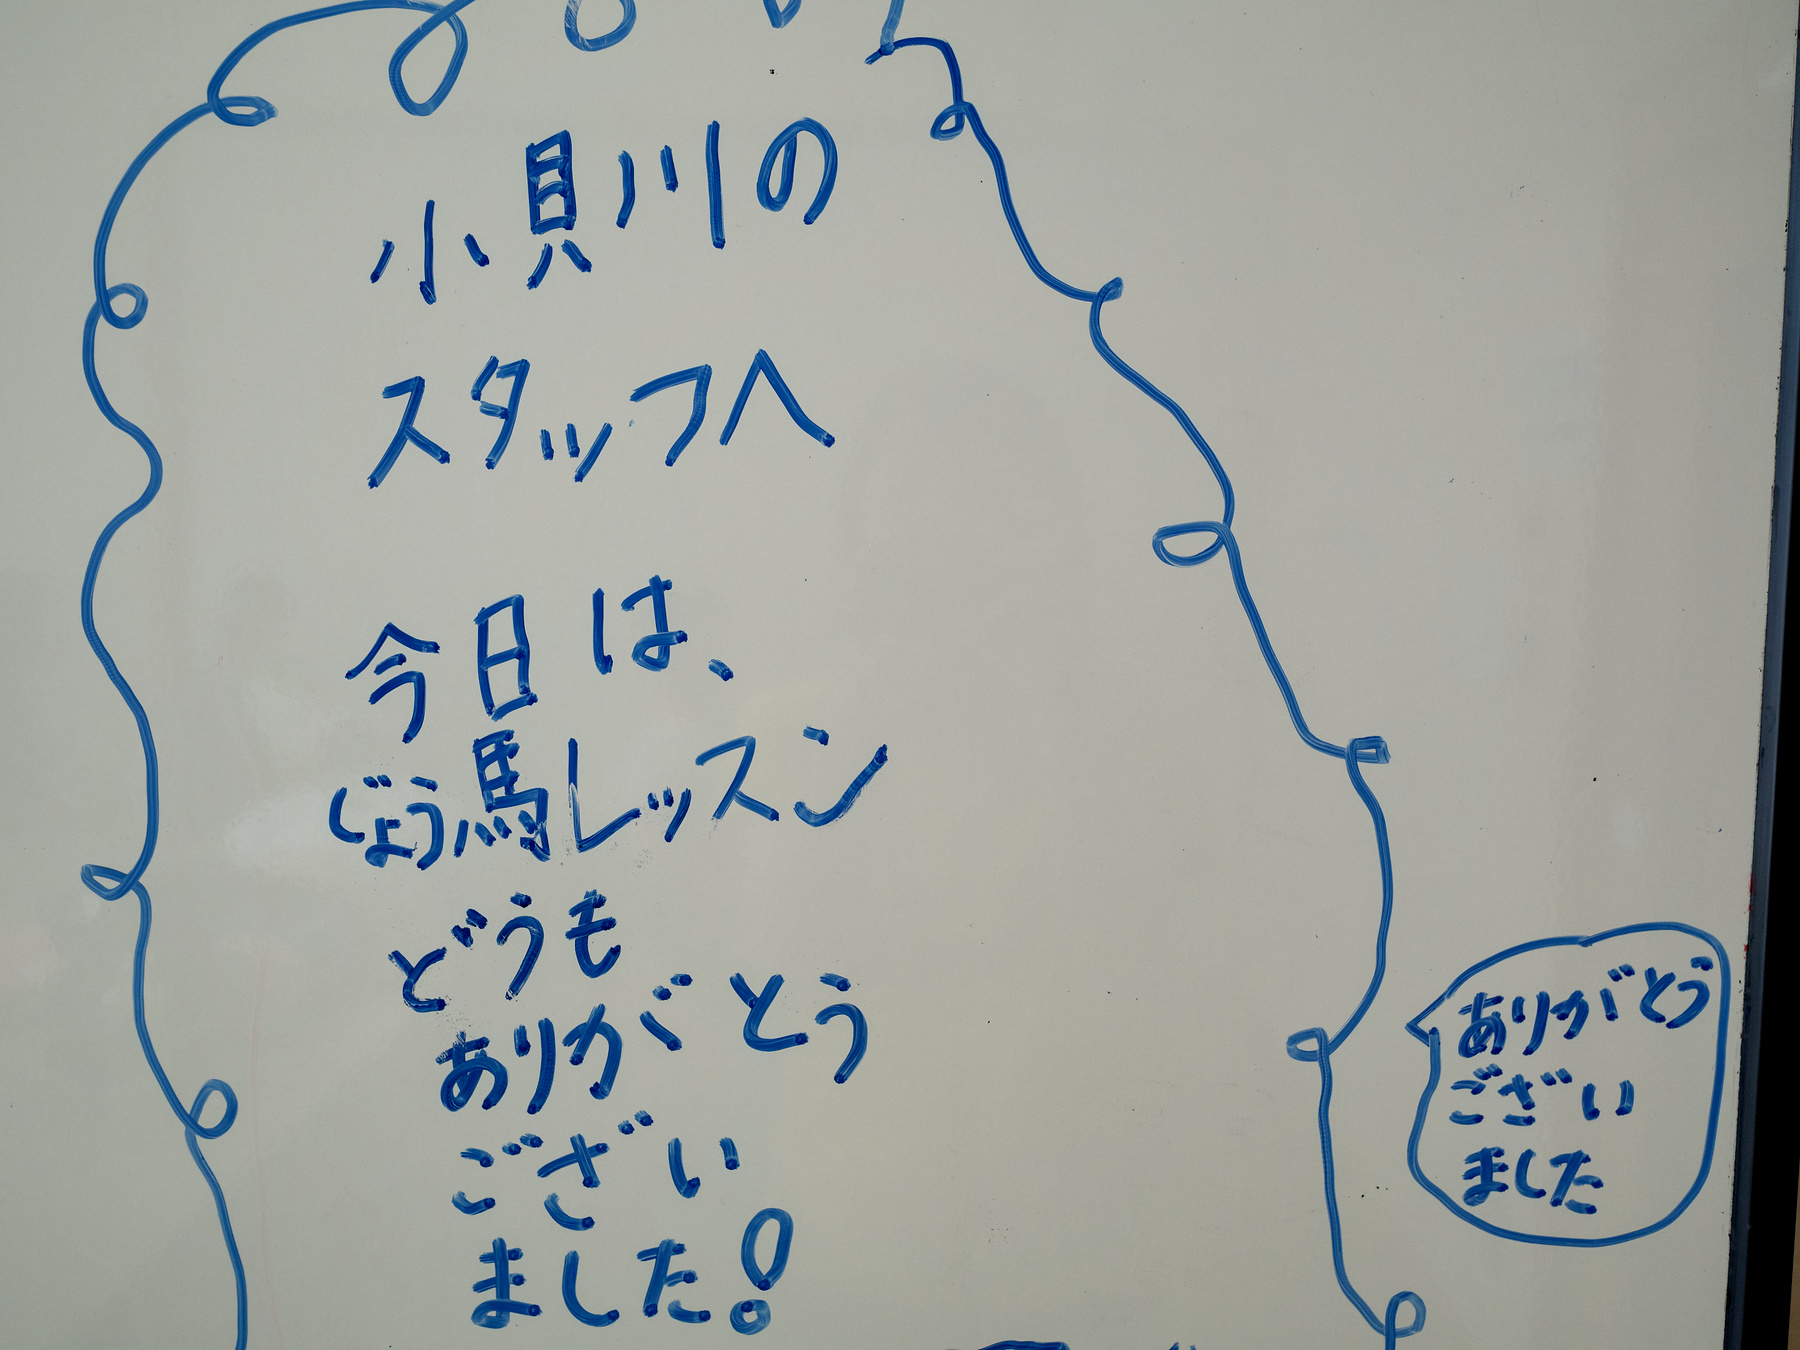 小貝川の
スタッフへ
今日は、
じょう馬レッスン
どうも
ありがとう
ござい
ました!
ありがとう
ござい
ました